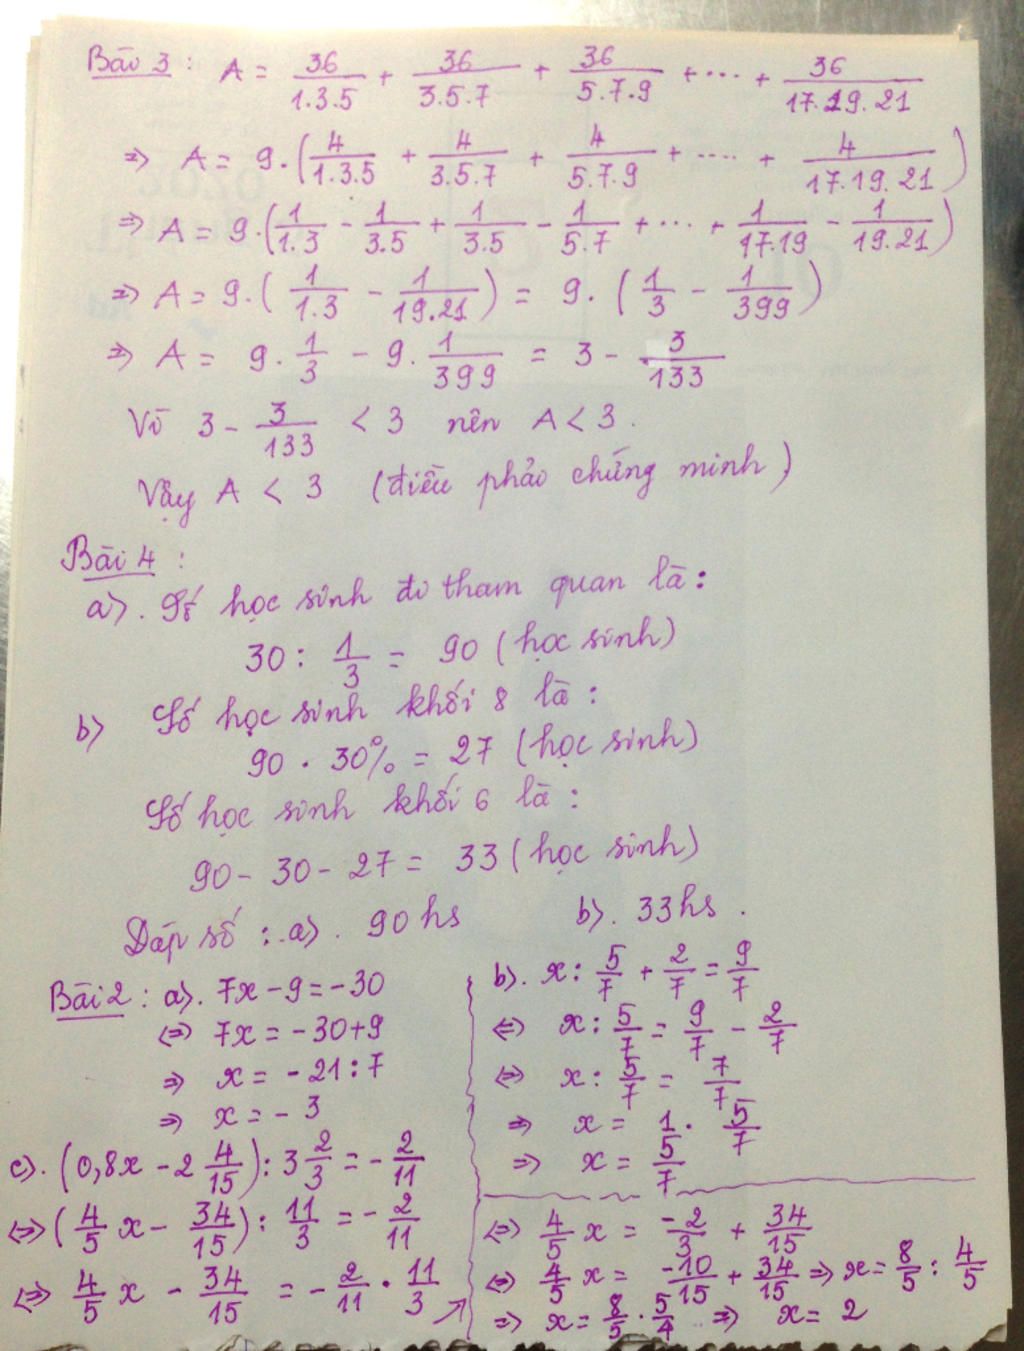 Bài 3 : A = 36/1.3.5 + 36/3.5.7 + 36/5.7.9 + ... + 36/17.19.21
=> A = 9.(4/1.3.5 + 4/3.5.7 + 4/5.7.9 + .... + 4/17.19.21)
=> A = 9.(1/1.3 - 1/3.5 + 1/3.5 - 1/5.7 + ... + 1/17.19 - 1/19.21)
=> A = 9.(1/1.3 - 1/19.21) = 9.(1/3 - 1/399)
=> A = 9.1/3 - 9.1/399 = 3 - 3/133
Vì 3 - 3/133 < 3 nên A < 3.
Vậy A < 3 (điều phải chứng minh)
Bài 4 :
a>. Số học sinh đi tham quan là :
30 : 1/3 = 90 (học sinh)
b> Số học sinh khối 8 là :
90 . 30% = 27 (học sinh)
Số học sinh khối 6 là :
90 - 30 - 27 = 33 (học sinh)
Đáp số : a>. 90 hs b>. 33 hs .
Bài 2 : a>. 7x - 9 = -30
<=> 7x = -30+9
=> x = -21 : 7
=> x = - 3
b>. x : 5/7 + 2/7 = 9/7
<=> x : 5/7 = 9/7 - 2/7
<=> x : 5/7 = 7/7
=> x = 1 . 5/7
=> x = 5/7
c>. (0,8x - 2 4/15) : 3 2/3 = - 2/11
<=> (4/5 x - 34/15) : 11/3 = - 2/11
<=> 4/5 x - 34/15 = - 2/11 . 11/3
<=> 4/5 x = -2/3 + 34/15
<=> 4/5 x = -10/15 + 34/15 => x = 8/5 : 4/5
=> x = 8/5 . 5/4 => x = 2